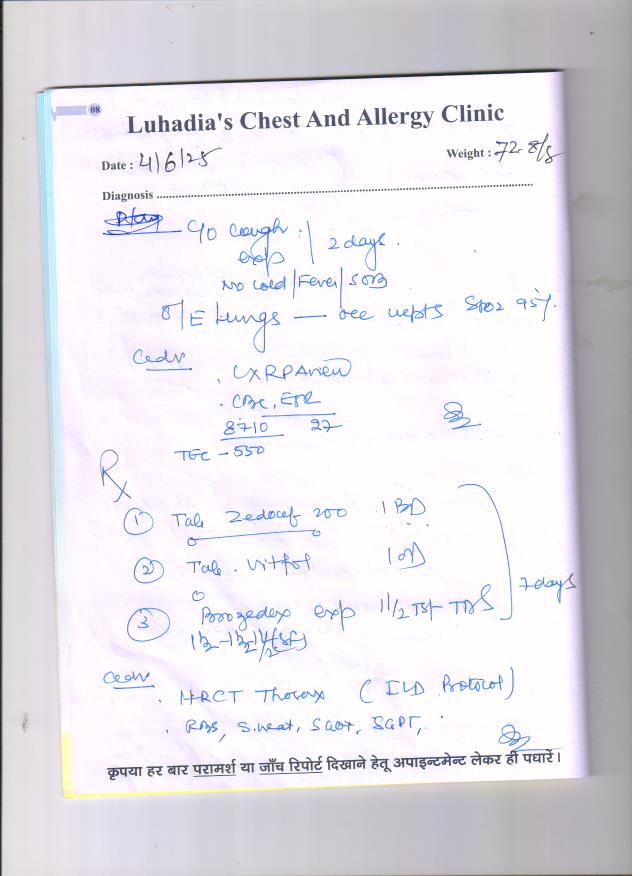 08
Luhadia's Chest And Allergy Clinic
Date : 4/6/25 Weight : 72.8/
Diagnosis
C/o Cough 2 days.
exp
No cold/Fever/SOB
O/E Lungs — SPO2 95%
Adv
. CXR PA view
. CBC, ESR
8710 27
TEC - 550
Rx
① Tab Zedocef 200 1 BD
② Tab. Vitfol 1 OD
7 days
③ Brozedex exp 1 1/2 TSF TDS
1½-1½-1½ (SF)
Adv
. HRCT Thorax (ILD Protocol)
. RBS, S.creat, SGOT, SGPT,
कृपया हर बार परामर्श या जाँच रिपोर्ट दिखाने हेतू अपाइन्टमेन्ट लेकर ही पधारें।